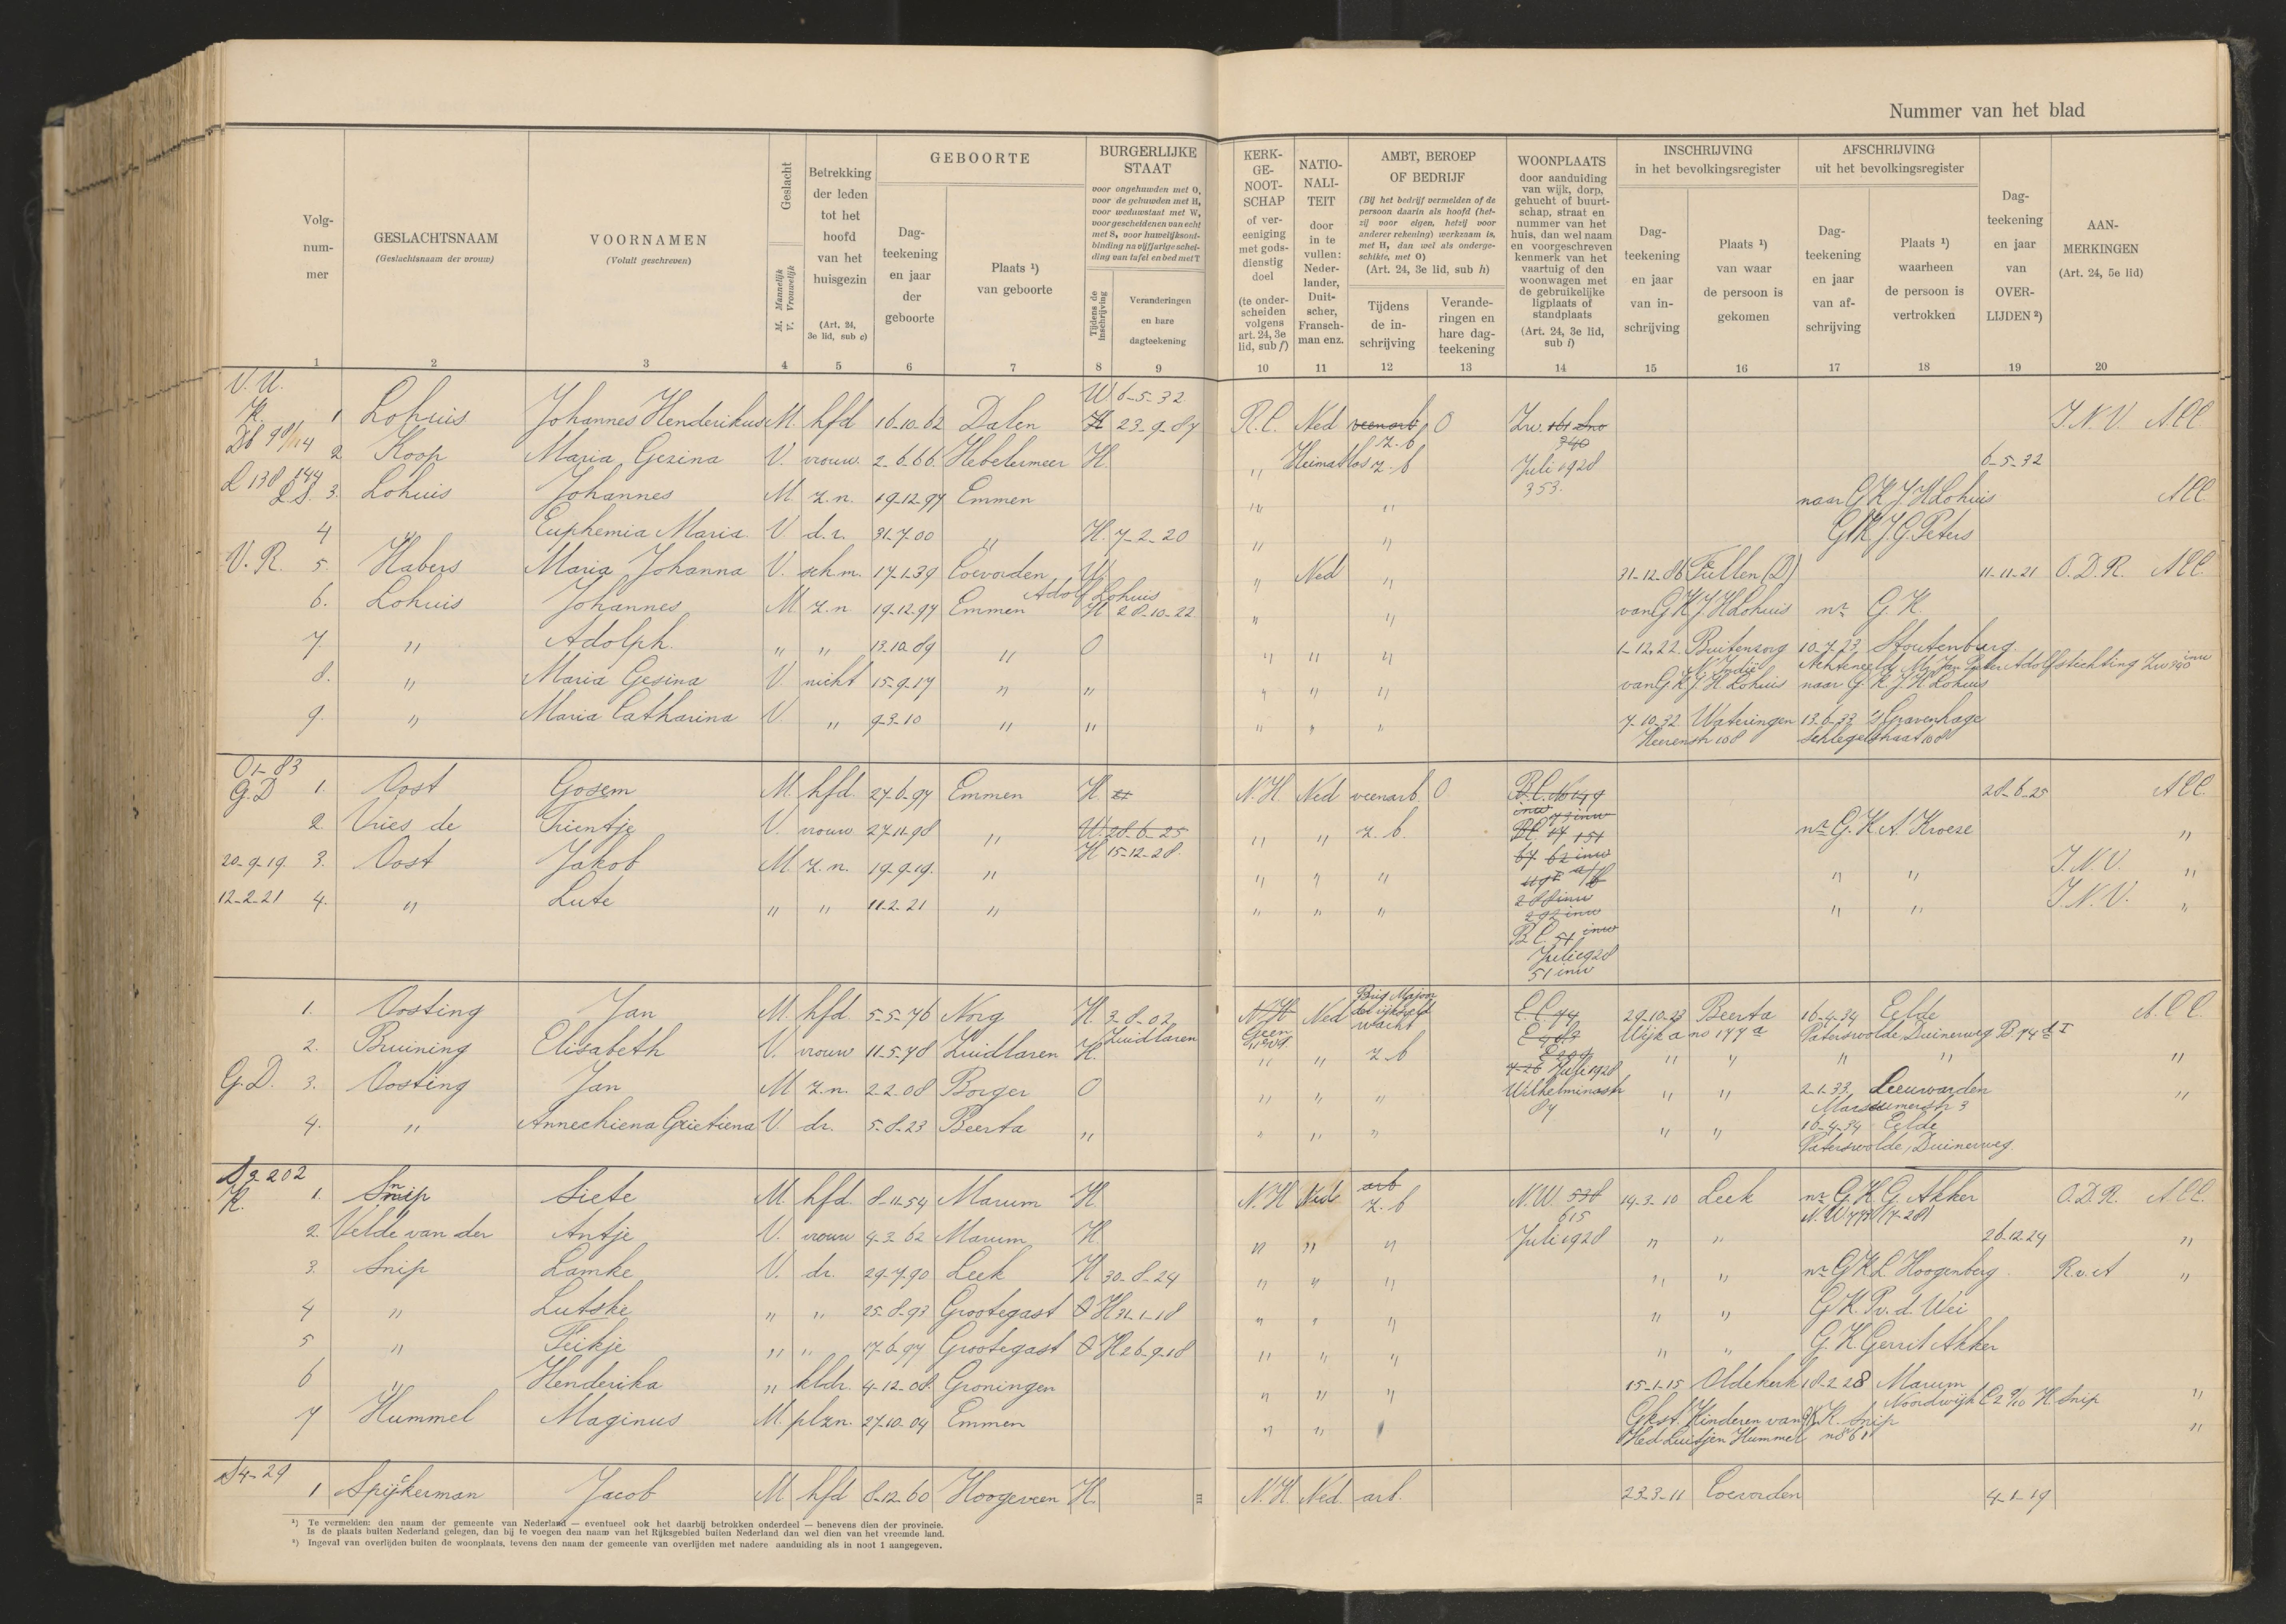 Nummer van het blad
Volg-
num-
mer
GESLACHTSNAAM
(Geslachtsnaam der vrouw)
VOORNAMEN
(Voluit geschreven)
Geslacht
M. Mannelijk
V. Vrouwelijk
Betrekking
der leden
tot het
hoofd
van het
huisgezin
(Art. 24,
3e lid, sub c)
GEBOORTE
Dag-
teekening
en jaar
der
geboorte
Plaats ¹)
van geboorte
BURGERLIJKE
STAAT
voor ongehuwden met O,
voor de gehuwden met H,
voor weduwstaat met W,
voor gescheidenen van echt
met S, voor huwelijksont-
binding na vijfjarige schei-
ding van tafel en bed met T
Tijdens de
inschrijving
Veranderingen
en hare
dagteekening
KERK-
GE-
NOOT-
SCHAP
of ver-
eeniging
met gods-
dienstig
doel
(te onder-
scheiden
volgens
art. 24, 3e
lid, sub f)
NATIO-
NALI-
TEIT
door
in te
vullen:
Neder-
lander,
Duit-
scher,
Fransch-
man enz.
AMBT, BEROEP
OF BEDRIJF
(Bij het bedrijf vermelden of de
persoon daarin als hoofd (het-
zij voor eigen, hetzij voor
anderer rekening) werkzaam is,
met H, dan wel als onderge-
schikte, met O)
(Art. 24, 3e lid, sub h)
Tijdens
de in-
schrijving
Verande-
ringen en
hare dag-
teekening
WOONPLAATS
door aanduiding
van wijk, dorp,
gehucht of buurt-
schap, straat en
nummer van het
huis, dan wel naam
en voorgeschreven
kenmerk van het
vaartuig of den
woonwagen met
de gebruikelijke
ligplaats of
standplaats
(Art. 24, 3e lid,
sub i)
INSCHRIJVING
in het bevolkingsregister
Dag-
teekening
en jaar
van in-
schrijving
Plaats ¹)
van waar
de persoon is
gekomen
AFSCHRIJVING
uit het bevolkingsregister
Dag-
teekening
en jaar
van af-
schrijving
Plaats ¹)
waarheen
de persoon is
vertrokken
Dag-
teekening
en jaar
van
OVER-
LIJDEN ²)
AAN-
MERKINGEN
(Art. 24, 5e lid)
1 2 3 4 5 6 7 8 9 10 11 12 13 14 15 16 17 18 19 20
V.U.
W 6-5-32
K. 1 Lohuis Johannes Henderikus M. hfd 16-10-62 Dalen H 23-9-87 R.C. Ned veenarb. O Zw. 161 I.N.V. ACC.
z.b 340
2 Koop Maria Gezina V. vrouw. 2-6-66. Hebelermeer H. " Heimatlos z-b Juli 1928 6-5-32
353.
3. Lohuis Johannes M z.n. 19-12-97 Emmen " " naar G.K J H Lohuis ACC.
4 " Euphemia Maria. V d.r. 31-7-00 " H. 7-2-20 " " G.K J.G. Peters
V.R. 5. Habers Maria Johanna V. sch.m. 17-1-39 Coevorden W. " Ned " 31-12-06 Füllen (D) 11-11-21 O.D.R. ACC.
Adolf Lohuis
6. Lohuis Johannes M z.n 19-12-97 Emmen H 28-10-22 " " van G.K J H Lohuis nr G.K.
7 " Adolph. " " 13-10-09 " O " " " 1-12-22 Buitenzorg 10-7-23 Stoutenburg.
N. Indië
8. " Maria Gesina V nicht 15-9-17 " " " " " van G.K J H Lohuis naar G.K. J.H Lohuis
9. " Maria Catharina V " 9-3-10 " " " " " 7-10-32 Wateringen 13-6-33 's Gravenhage
Heerenstr 108 Schlegelstraat 108
O1-83
G.D 1. Oost Gosem M. hfd. 27-6-97 Emmen H. N.H. Ned veenarb. O 28-6-25 ACC.
2. Vries de Trientje V. vrouw 27-11-98 " W. 28-6-25 " " z.b. nr G.K A. Kroeze "
H 15-12-28.
20-9-19. 3. Oost Jakob M. z.n. 19-9-19. " " " " " " I.N.V. "
12-2-21 4. " Lute " " 11-2-21 " " " " " " I.N.V. "
288 inw
292 inw
B.C. 51 inw
Juli 1928
51 inw
1. Oosting Jan M. hfd. 5-5-76 Norg H. 3-8-02 N.H Ned Brig. Majoor der rijksveldwacht 29-10-23 Beerta 16-4-34 Eelde A.C.C.
Zuidlaren Geen Wijk a no 177a Paterswolde, Duinerweg B.74
2. Bruining Elisabeth V. vrouw 11-5-78 Zuidlaren H. " " z.b " " " " "
Juli 1928
G.D. 3. Oosting Jan M z.n 2-2-08 Borger O " " " Wilhelminastr " " 2-1-33. Leeuwarden "
87 Marssumerstr 3
4. " Annechiena Grietiena V dr. 5-8-23 Beerta " " " " " " 16-4-34 Eelde
Paterswolde, Duinerweg.
S3-202
K. 1. Snip Siete M. hfd. 8-11-54 Marum H. N.H Ned arb N.W. 538 14-3-10 Leek nr G.K G. Akker O.D.R. A.C.C.
z.b 615
2. Velde van der Antje V. vrouw 4-3-62 Marum H. " " " Juli 1928 " " 26-12-29 "
3. Snip Lamke V. dr. 29-7-90 Leek H 30-8-24 " " " " " nr G.K L Hoogenberg. R.v.A "
4 " Lutske " " 25-8-93 Grootegast O H 31-1-18 " " " " " G.K. P.v.d. Wei
5 " Feikje " " 17-6-97 Grootegast O H 26-9-18 " " " " " G.K Gerrit Akker
6 " Henderika " kldr. 4-12-08. Groningen " " " 15-1-15 Oldekerk 18-2-28 Marum "
Noordwijk C2 9/10 H. Snip
7 Hummel Maginus M. plzn. 27-10-04 Emmen " " Gkst. Kinderen van G.K K. Snip "
Luitjen Hummel
S4-29
1 Spijkerman Jacob M hfd 8-12-60 Hoogeveen H. N.H. Ned. arb. 23-3-11 Coevorden 4-1-19
¹) Te vermelden: den naam der gemeente van Nederland — eventueel ook het daarbij betrokken onderdeel — benevens dien der provincie.
Is de plaats buiten Nederland gelegen, dan bij te voegen den naam van het Rijksgebied buiten Nederland dan wel dien van het vreemde land.
²) Ingeval van overlijden buiten de woonplaats, tevens den naam der gemeente van overlijden met nadere aanduiding als in noot 1 aangegeven.